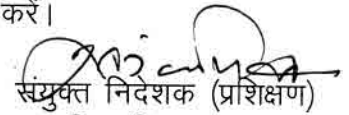 करें।
संयुक्त निदेशक (प्रशिक्षण)